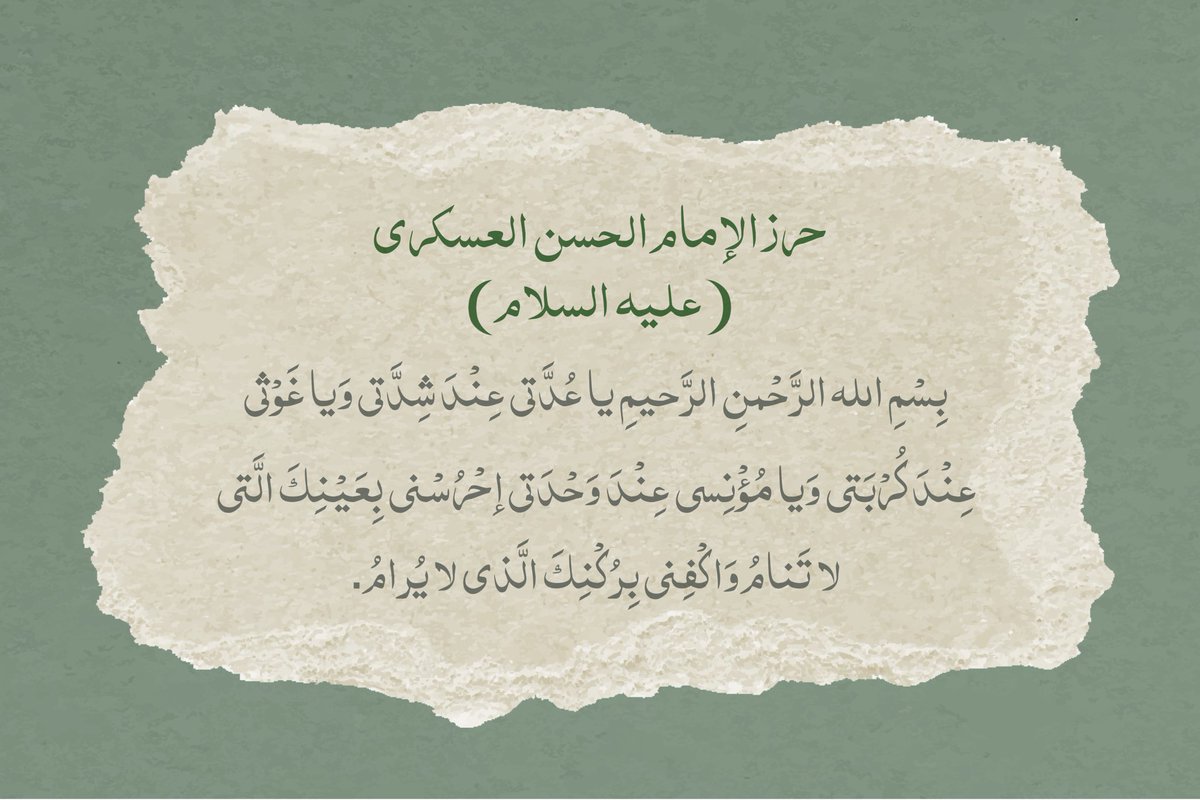 حرز الإمام الحسن العسكرى
( عليه السلام )
بِسْمِ الله الرَّحْمنِ الرَّحيمِ يا عُدَّتى عِنْدَ شِدَّتى وَيا غَوْثى
عِنْدَ كُرْبَتى وَيا مُؤْنِسى عِنْدَ وَحْدَتى إحْرُسْنى بِعَيْنِكَ الَّتى
لا تَنامُ وَاكْفِنى بِرُكْنِكَ الَّذى لا يُرامُ.